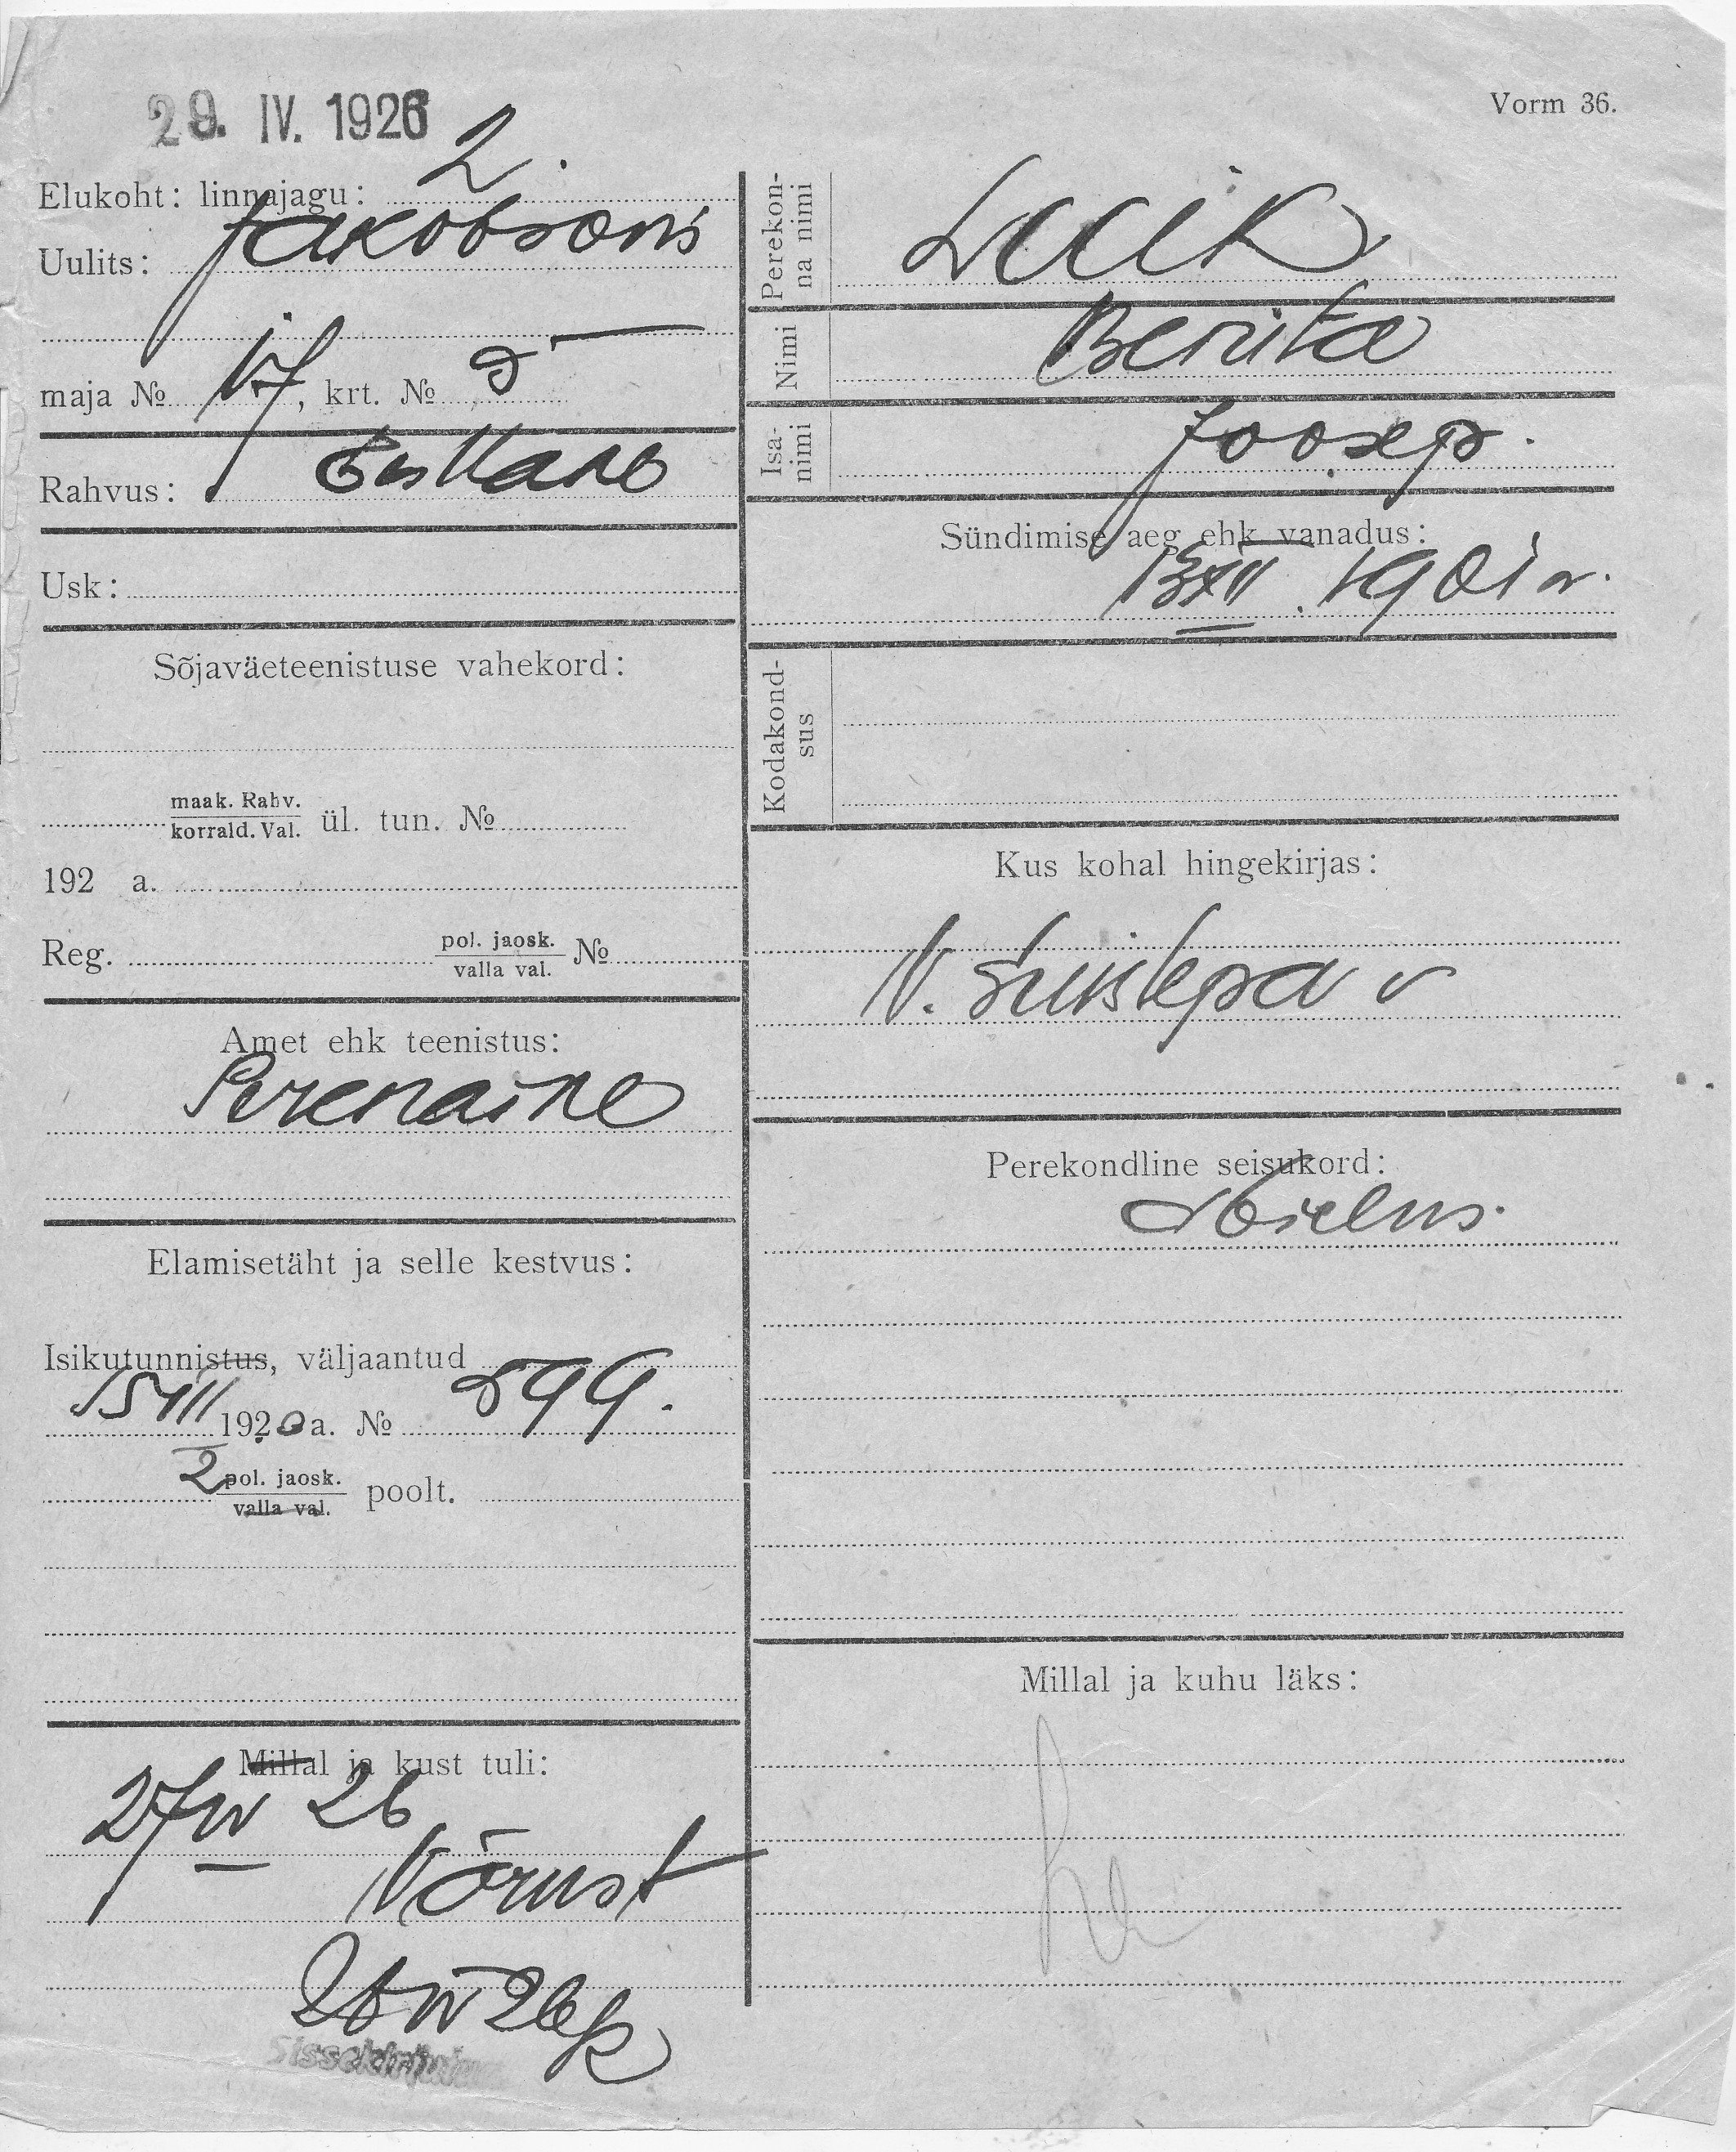 29. IV. 1926
Vorm 36.
Elukoht: linnajagu: 2.
Uulits: Jakobsoni
maja № 17, krt. № 5
Rahvus: Eestlane
Usk:
Sõjaväeteenistuse vahekord:
maak. Rahv.
korrald. Val. ül. tun. №
192 a.
Reg. pol. jaosk. №
valla val.
Amet ehk teenistus:
Perenaine
Elamisetäht ja selle kestvus:
Isikutunnistus, väljaantud
1920 a. № 899.
2 pol. jaosk. poolt.
valla val.
Millal ja kust tuli:
27 IV 26
Võrust
26
Perekonna nimi
Luik
Nimi
Berita
Isanimi
Joosep.
Sündimise aeg ehk vanadus:
13 XII. 1901
Kodakondsus
Kus kohal hingekirjas:
V. Suislepa v
Perekondline seisukord:
Abielus.
Millal ja kuhu läks: